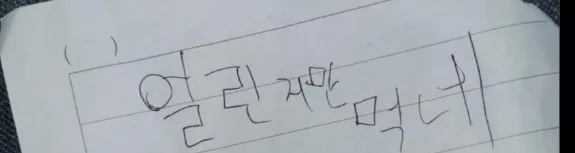 ( )
얼린지만 먹네